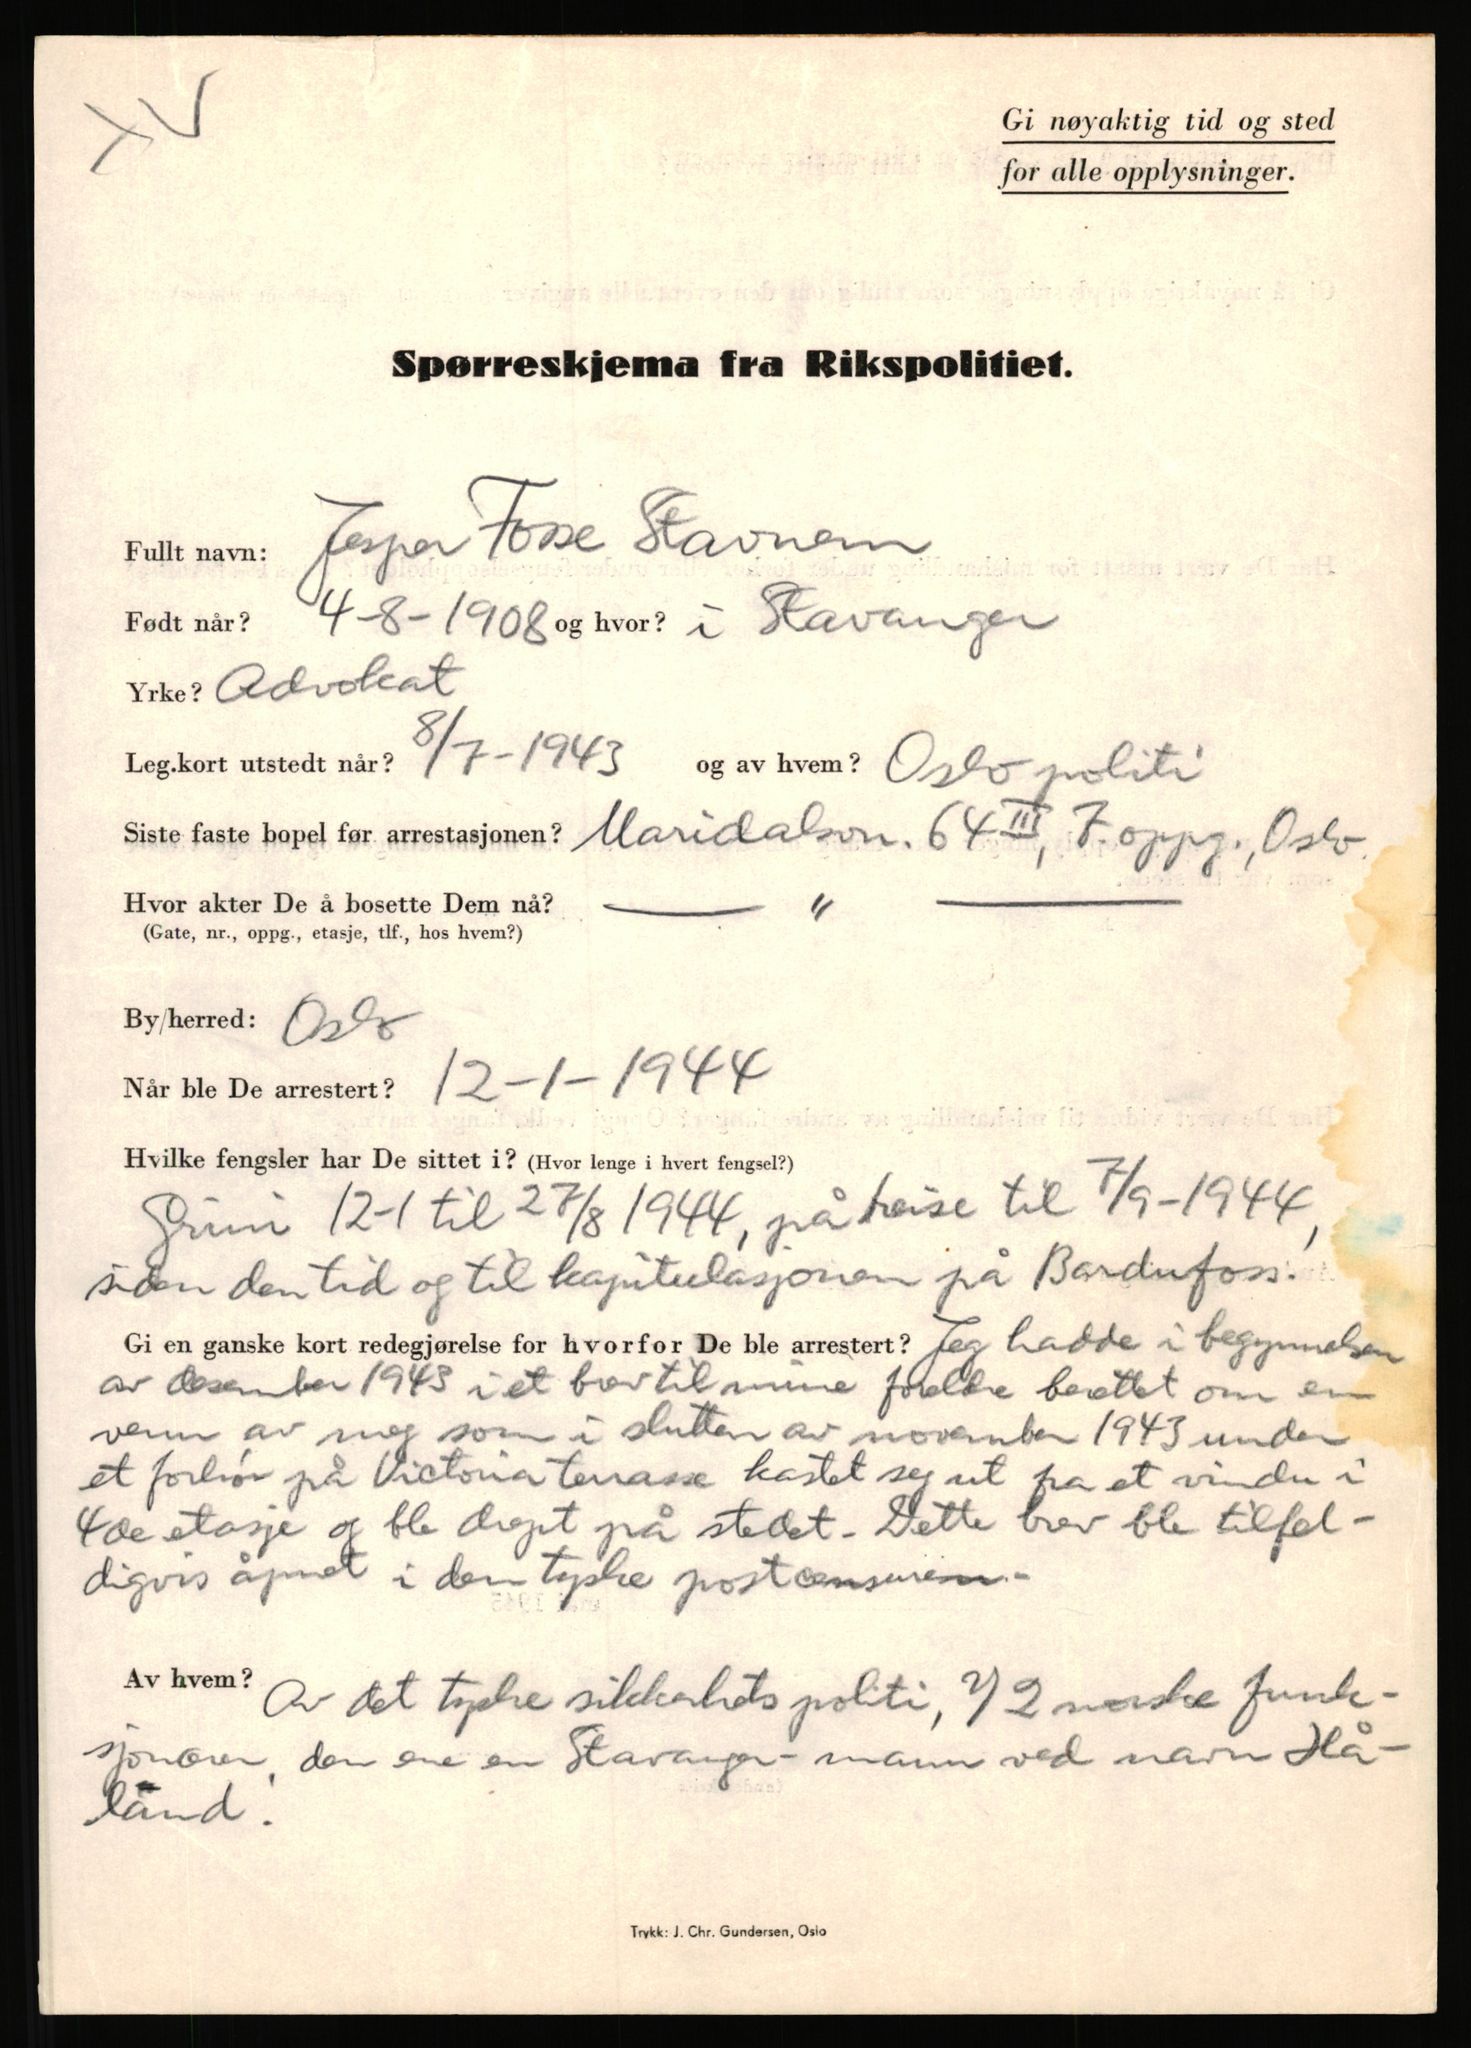 XV
Gi nøyaktig tid og sted
for alle opplysninger.
Spørreskjema fra Rikspolitiet.
Fullt navn: Jesper Fosse Stavnem
Født når? 4-8-1908 og hvor? i Stavanger
Yrke? Advokat
Leg.kort utstedt når? 8/7-1943 og av hvem? Oslo politi
Siste faste bopel før arrestasjonen? Maridalsvn. 64 III, 7. oppg., Oslo.
Hvor akter De å bosette Dem nå? — " —
(Gate, nr., oppg., etasje, tlf., hos hvem?)
By/herred: Oslo
Når ble De arrestert? 12-1-1944
Hvilke fengsler har De sittet i? (Hvor lenge i hvert fengsel?)
Grini 12-1 til 27/8 1944, på reise til 7/9-1944,
siden den tid og til kapitulasjonen på Bardufoss.
Gi en ganske kort redegjørelse for hvorfor De ble arrestert? Jeg hadde i begynnelsen
av desember 1943 i et brev til mine foreldre berettet om en
venn av meg som i slutten av november 1943 under
et forhør på Victoria terrasse kastet seg ut fra et vindu i
4de etasje og ble drept på stedet. Dette brev ble tilfel-
digvis åpnet i den tyske postcensuren.-
Av hvem? Av det tyske sikkerhetspoliti, v/ 2 norske funk-
sjonærer, den ene en Stavanger-mann ved navn Hå-
land.
Trykk: J. Chr. Gundersen, Oslo